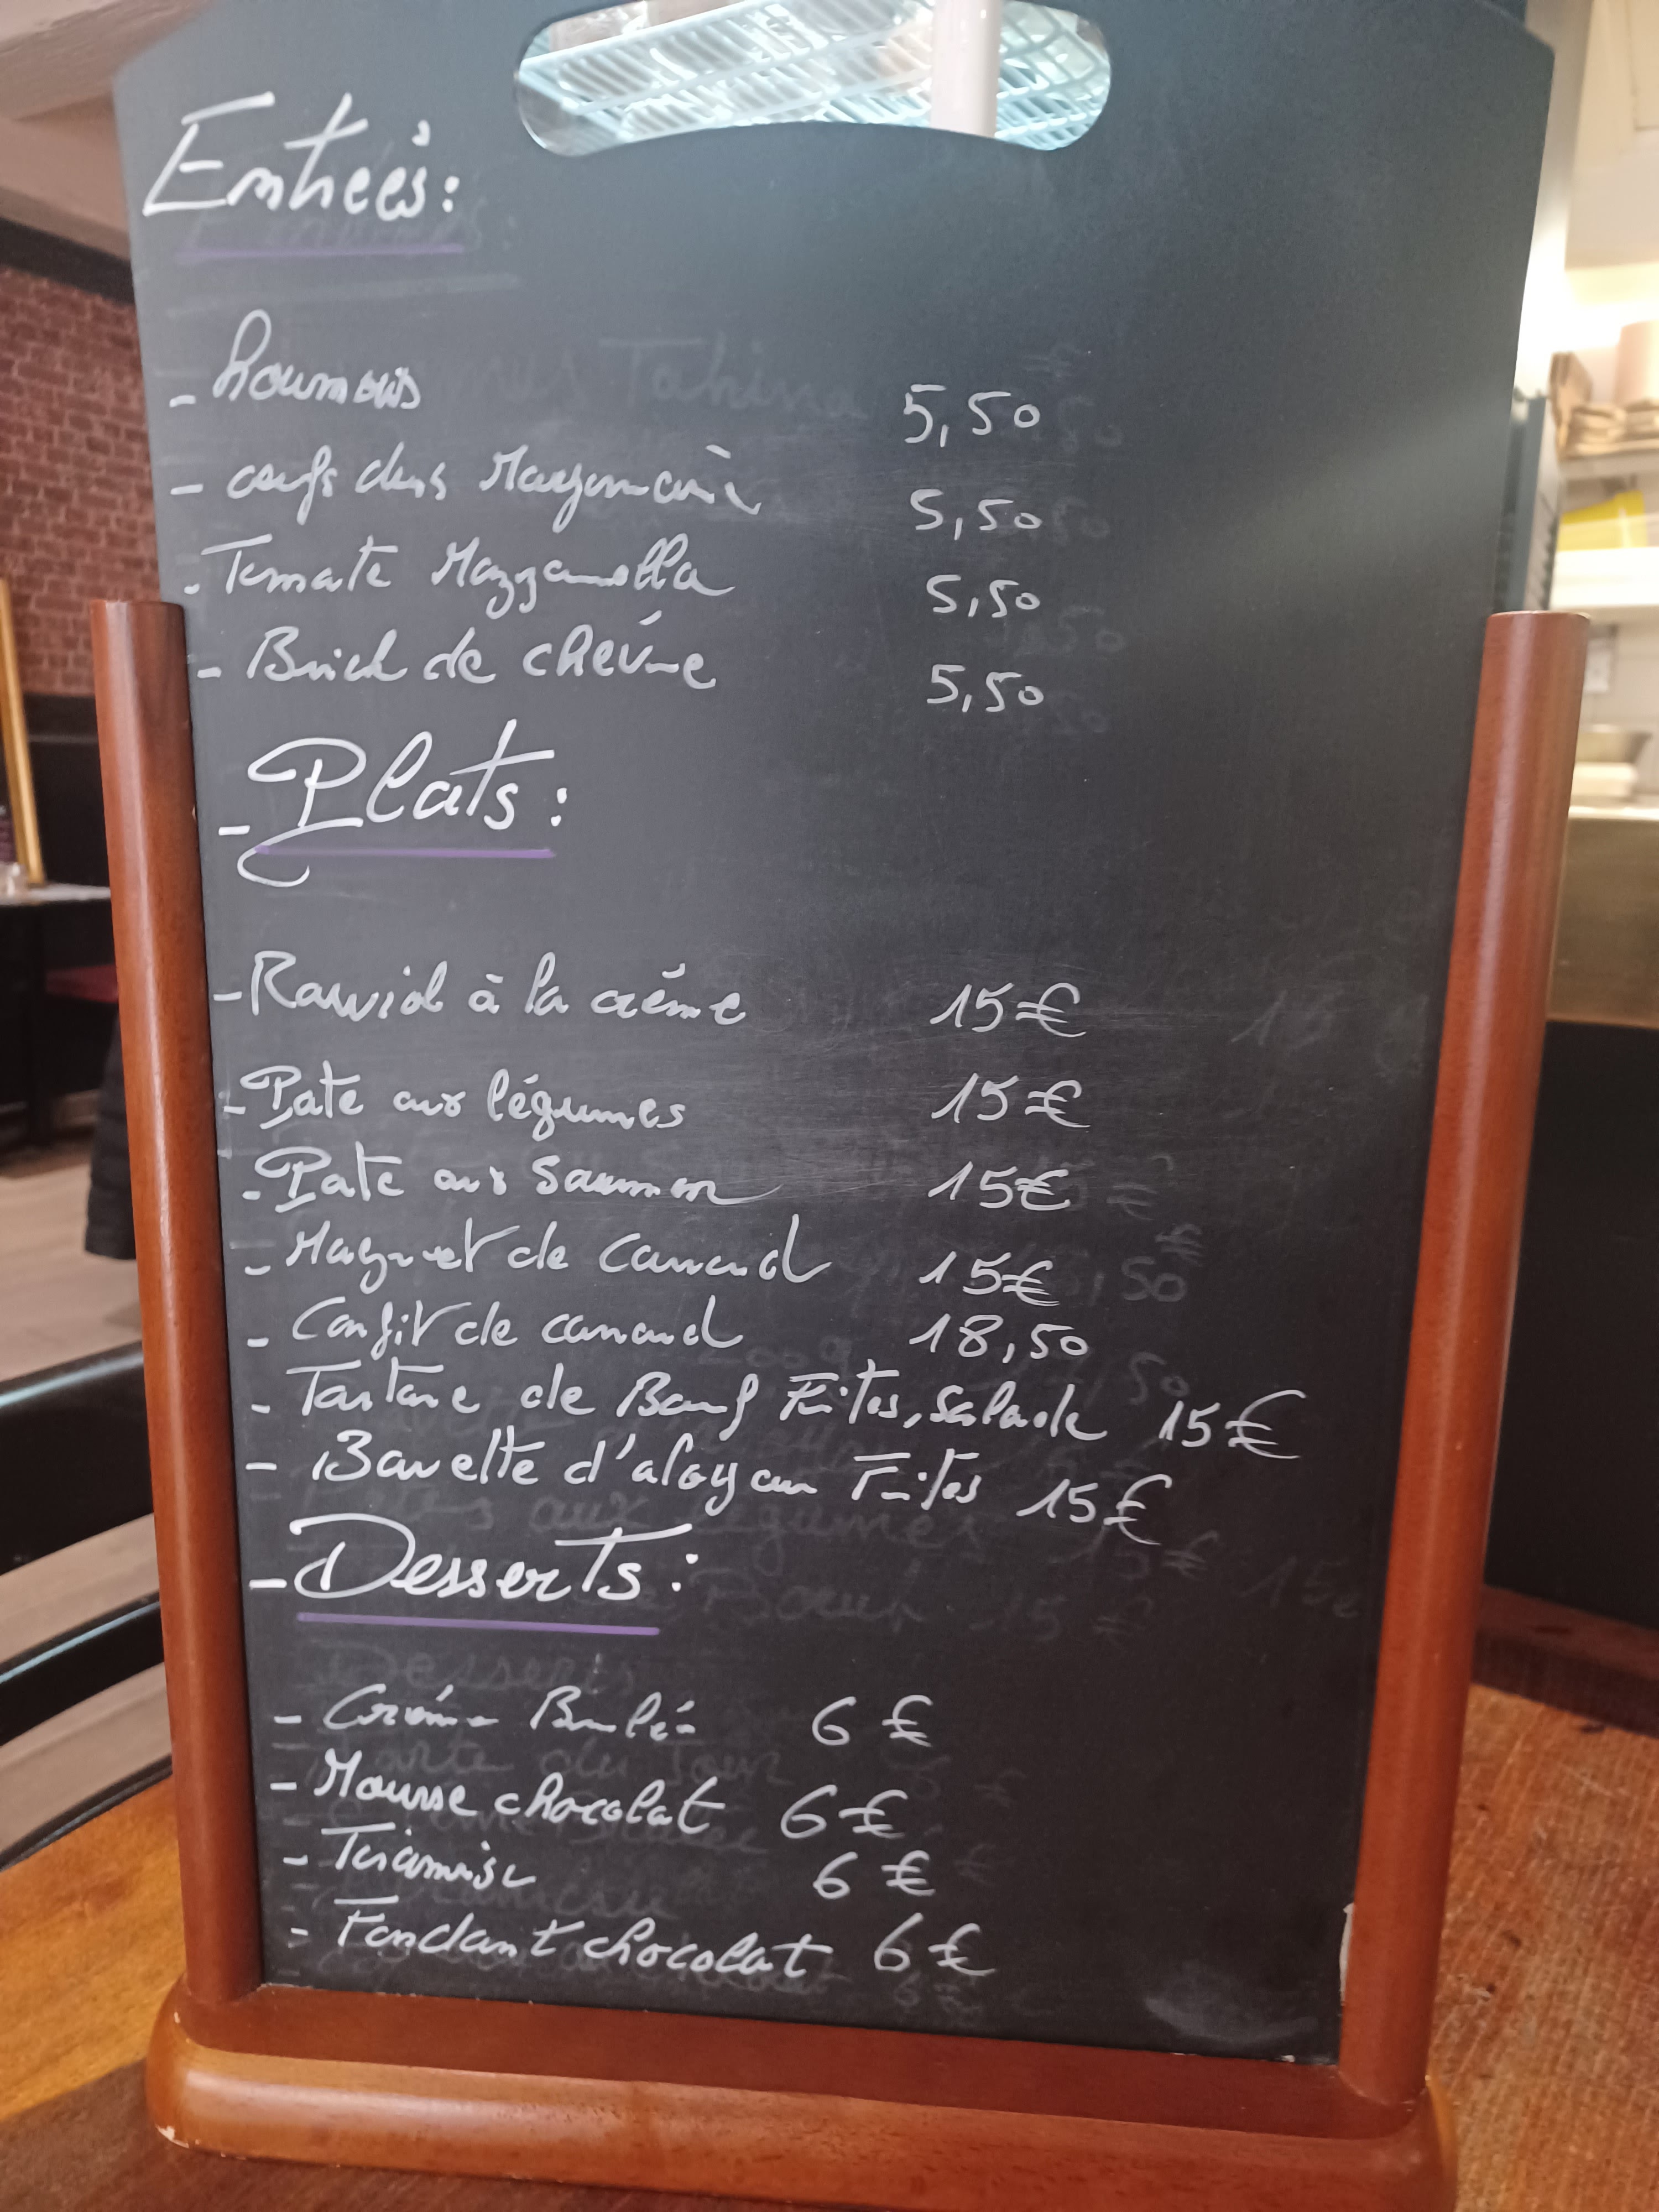 Entrées:
- houmous 5,50
- œufs durs Mayonnaise 5,50
- Tomate Mozzarella 5,50
- Brick de chévre 5,50
- Plats:
- Raviol à la créme 15€
- Pate aux légumes 15€
- Pate aux Saumon 15€
- Magret de Canard 15€
- Confit de canard 18,50
- Tartare de Bœuf Frites, Salade 15€
- Bavette d'aloyau Frites 15€
- Desserts:
- Créme Brulée 6 €
- Mousse chocolat 6€
- Tiramisu 6 €
- Fondant chocolat 6€